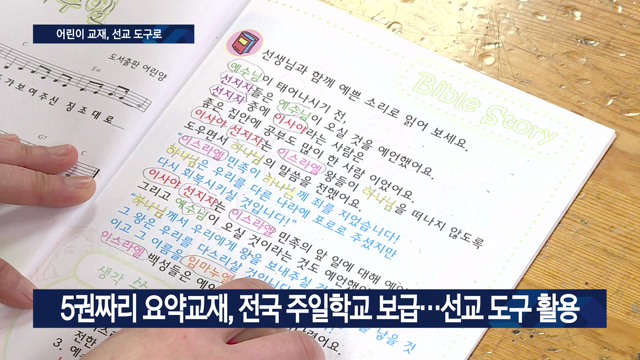 어린이 교재, 선교 도구로
도서출판 어린양
가 보여주신 징조대로
Em
G7
C
Bible Story
선생님과 함께 예쁜 소리로 읽어 보세요.
예수님이 태어나시기 전,
선지자들은 예수님이 오실 것을 예언했어요.
선지자 중에 이사야라는 사람은
좋은 집안에 공부도 많이 한 사람 이었어요.
이사야 선지자는 이스라엘 왕들이 하나님을 떠나지 않도록
도우면서 하나님의 말씀을 전했어요.
"이스라엘 민족이 하나님께 죄를 지었습니다!
하나님은 우리를 다른 나라에 포로로 주셨지만
다시 회복시키실 것입니다!"
이사야 선지자는 이스라엘 민족의 앞 일에 대해 예언
그리고 예수님이 오실 것이라는 것도 예언했
"하나님께서 우리에게 왕을 보내주실
그 왕은 우리를 다스리실
이고 그 이름을 임마누엘
이스라엘 백성들은 예언
생각
5권짜리 요약교재, 전국 주일학교 보급…선교 도구 활용
전한
3. 예